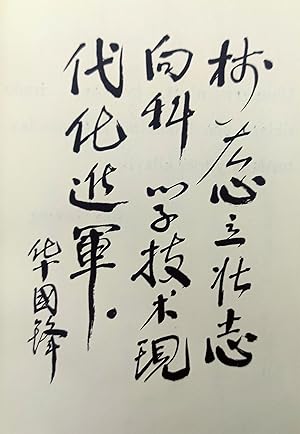 树雄心立壮志
向科学技术现
代化进軍。
华國锋